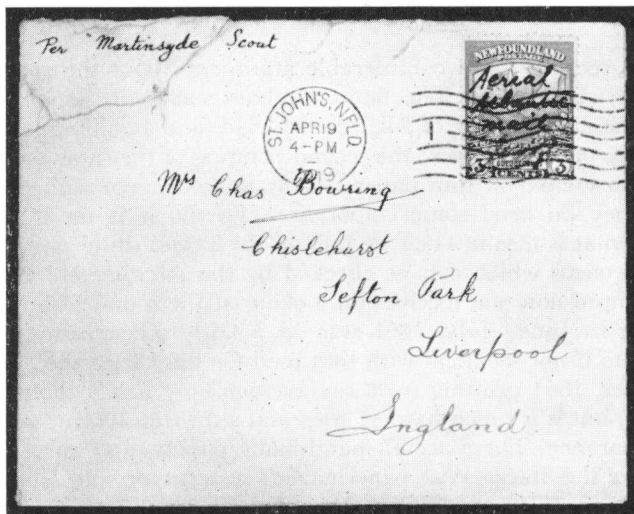 Per "Martinsyde" Scout
NEWFOUNDLAND
POSTAGE
Aerial
Atlantic
mail
3 CENTS 3
ST. JOHN'S, NFLD.
APR 19
4-PM
1919
1
Mrs Chas Bowring
Chislehurst
Sefton Park
Liverpool
England